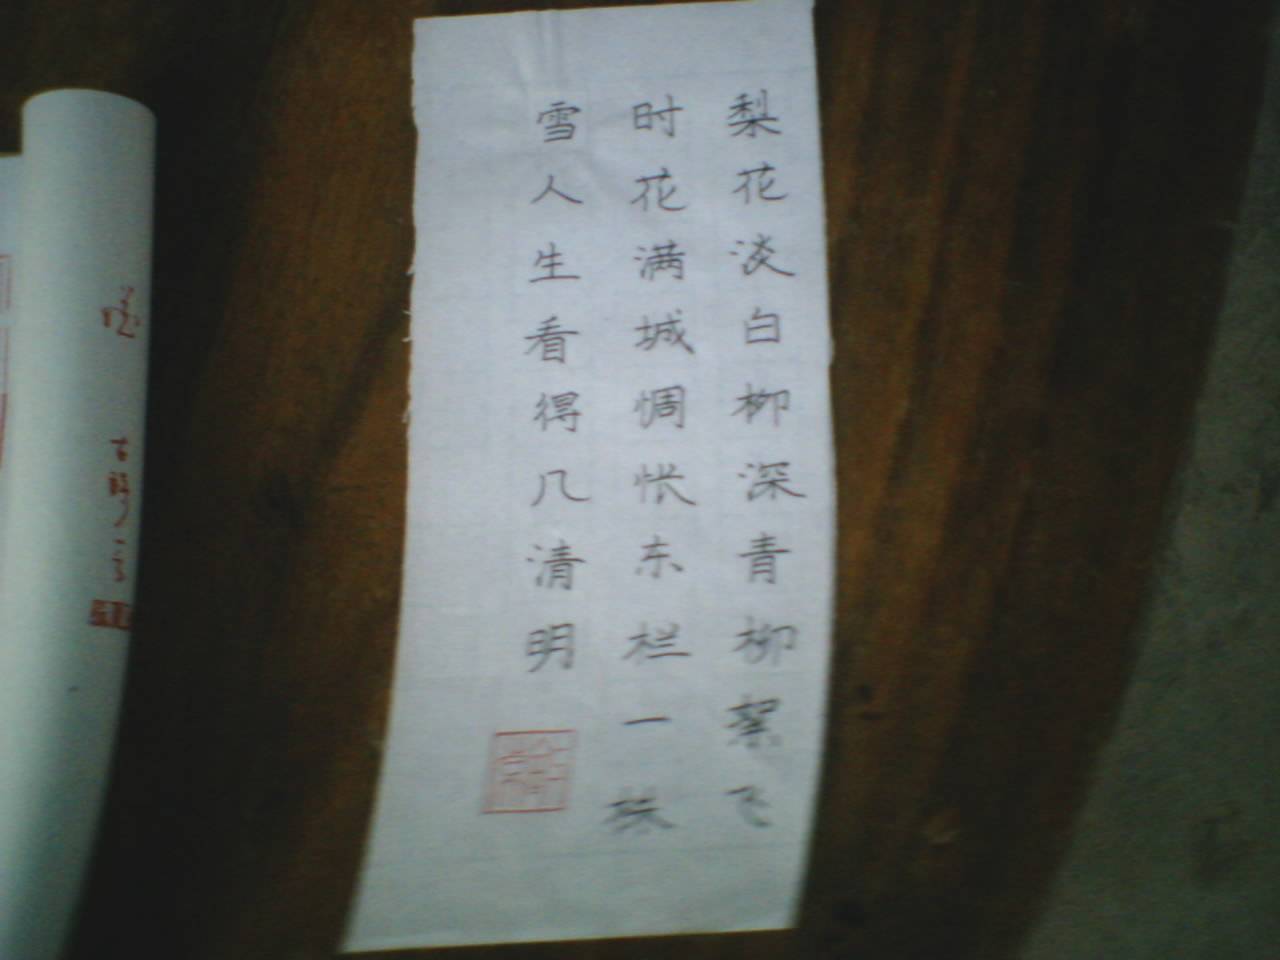 梨花淡白柳深青柳絮飞
时花满城惆怅东栏一株
雪人生看得几清明